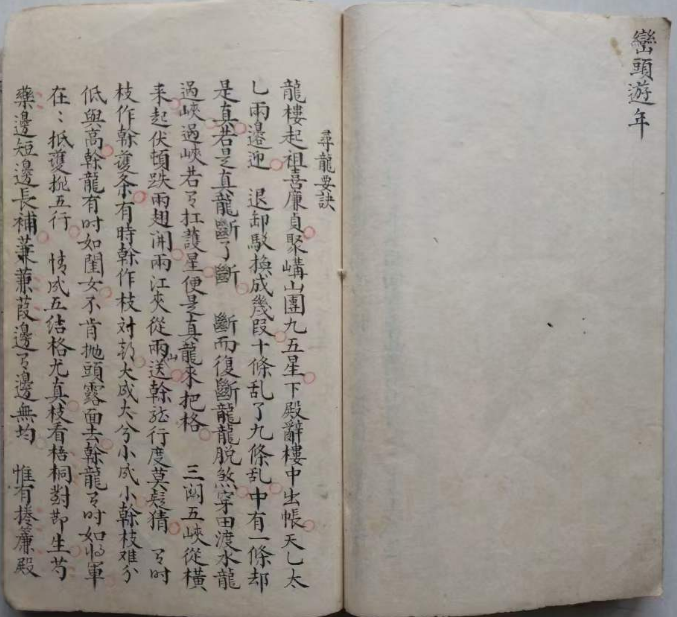 巒頭遊年
尋龍要訣
龍樓起祖喜廉貞聚講山團九五星下殿辭樓中出帳天乚太
乚兩邉迎 退卸駁換成幾段十條乱了九條乱中有一條却
是真若是真龍斷了斷 斷而復斷龍龍脫煞穿田渡水龍
過峽過峽若有扛護星便是真龍來把格 三湖五峽從橫
来起伏頓跌兩翅開兩江夾從兩山送幹龙行度莫疑猜 有时
枝作幹護条有時幹作枝対大成大分小成小幹枝难分
低與高幹龍有时如閨女不肯抛頭露面去幹龍有时如將軍
在〻抵護擁五行 情成五结格尤真枝看梧桐對節生芍
藥邉短邉長補蒹蒹葭邉有邉無均 惟有捲簾殿